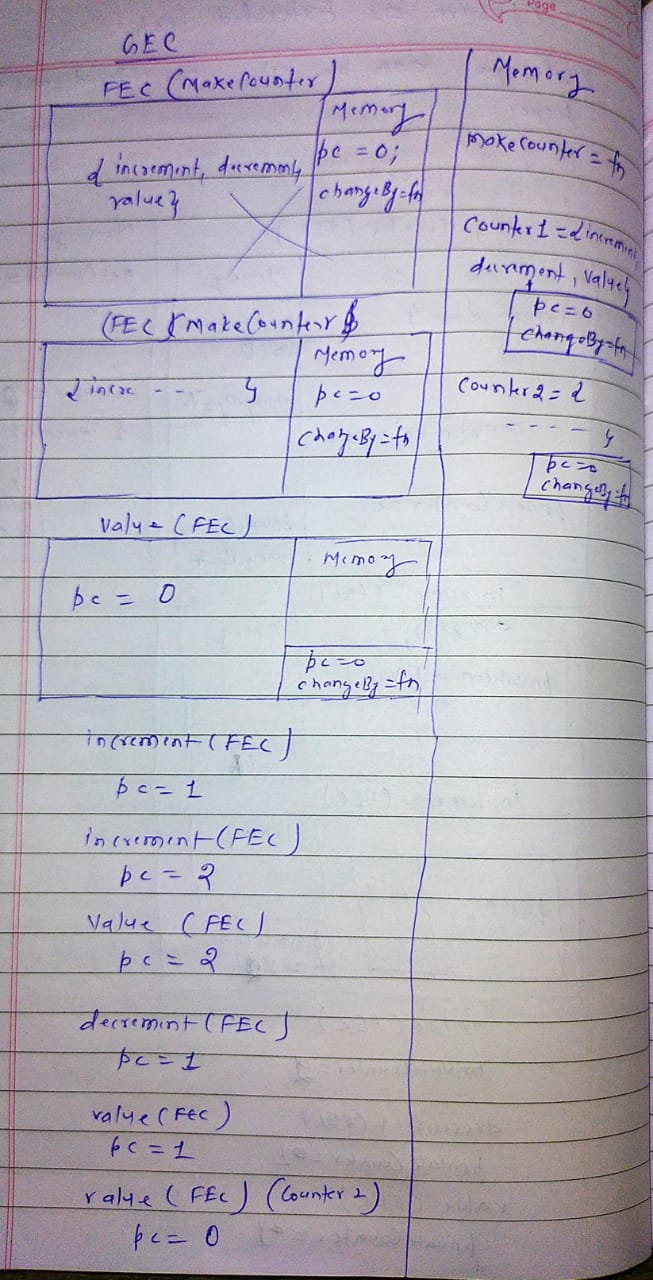 Page
GEC
FEC (MakeCounter)
Memory
pc = 0;
{ increment, decrement,
value}
changeBy=fn
(FEC) (MakeCounter)
Memory
{ incre - - - }
pc=0
changeBy=fn
value (FEC)
Memory
pc = 0
pc=0
changeBy=fn
increment (FEC)
pc = 1
increment (FEC)
pc = 2
Value (FEC)
pc = 2
decrement (FEC)
pc = 1
value (FEC)
pc = 1
value (FEC) (Counter 2)
pc = 0
Memory
makeCounter = fn
Counter1 = {increment,
decrement, value}
pc=0
changeBy=fn
Counter2 = {
- - - - }
pc=0
changeBy=fn